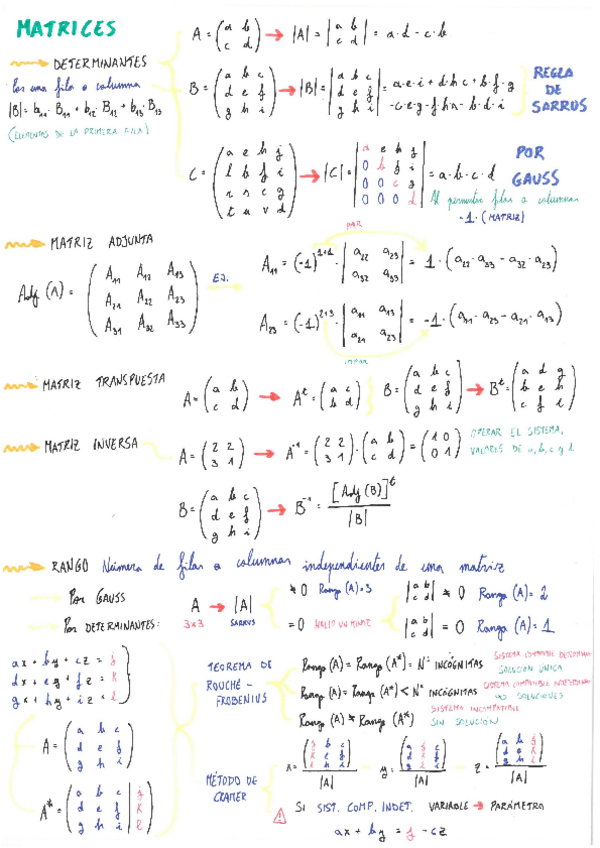 MATRICES
DETERMINANTES
Por una fila o columna
|B| = b₁₁ · B₁₁ + b₁₂ · B₁₂ + b₁₃ · B₁₃
(ELEMENTOS DE LA PRIMERA FILA)
A = (a b / c d) → |A| = |a b / c d| = a·d - c·b
B = (a b c / d e f / g h i) → |B| = |a b c / d e f / g h i| = a·e·i + d·h·c + b·f·g
-c·e·g - f·h·a - b·d·i
REGLA
DE
SARRUS
|C| = a·b·c·d
POR
GAUSS
Al permutar filas o columnas
-1·(MATRIZ)
MATRIZ ADJUNTA
Adj (A) = (A₁₁ A₁₂ A₁₃ / A₂₁ A₂₂ A₂₃ / A₃₁ A₃₂ A₃₃)
EJ.
PAR
A₁₁ = (-1)¹⁺¹ · |a₂₂ a₂₃ / a₃₂ a₃₃| = 1 · (a₂₂ · a₃₃ - a₃₂ · a₂₃)
A₂₃ = (-1)²⁺³ · |a₁₁ a₁₃ / a₂₁ a₂₃| = -1 · (a₁₁ · a₂₃ - a₂₁ · a₁₃)
IMPAR
MATRIZ TRANSPUESTA
A = (a b / c d) → Aᵗ = (a c / b d)
B = (a b c / d e f / g h i) → Bᵗ = (a d g / b e h / c f i)
MATRIZ INVERSA
A = (2 2 / 3 1) → A⁻¹ = (2 2 / 3 1) · (a b / c d) = (1 0 / 0 1)
OPERAR EL SISTEMA,
VALORES DE a, b, c y d.
B = (a b c / d e f / g h i) → B⁻¹ = [Adj (B)]ᵗ / |B|
RANGO Número de filas o columnas independientes de una matriz
Por GAUSS
Por DETERMINANTES:
A → |A|
3x3 SARRUS
≠ 0 Rango (A) = 3
= 0 HALLO UN MENOR
|a b / c d| ≠ 0 Rango (A) = 2
|a b / c d| = 0 Rango (A) = 1
ax + by + cz = j
dx + ey + fz = k
gx + hy + iz = l
A = (a b c / d e f / g h i)
A* = (a b c | j / d e f | k / g h i | l)
TEOREMA DE
ROUCHÉ -
FROBENIUS
Rango (A) = Rango (A*) = Nº INCÓGNITAS
SISTEMA COMPATIBLE DETERMINADO
SOLUCIÓN ÚNICA
Rango (A) = Rango (A*) < Nº INCÓGNITAS
SISTEMA COMPATIBLE INDETERMINADO
∞ SOLUCIONES
Rango (A) ≠ Rango (A*)
SISTEMA INCOMPATIBLE
SIN SOLUCIÓN
MÉTODO DE
CRAMER
x = (j b c / k e f / l h i) / |A|
y = (a j c / d k f / g l i) / |A|
z = (a b j / d e k / g h l) / |A|
SI SIST. COMP. INDET. VARIABLE → PARÁMETRO
ax + by = j - cz